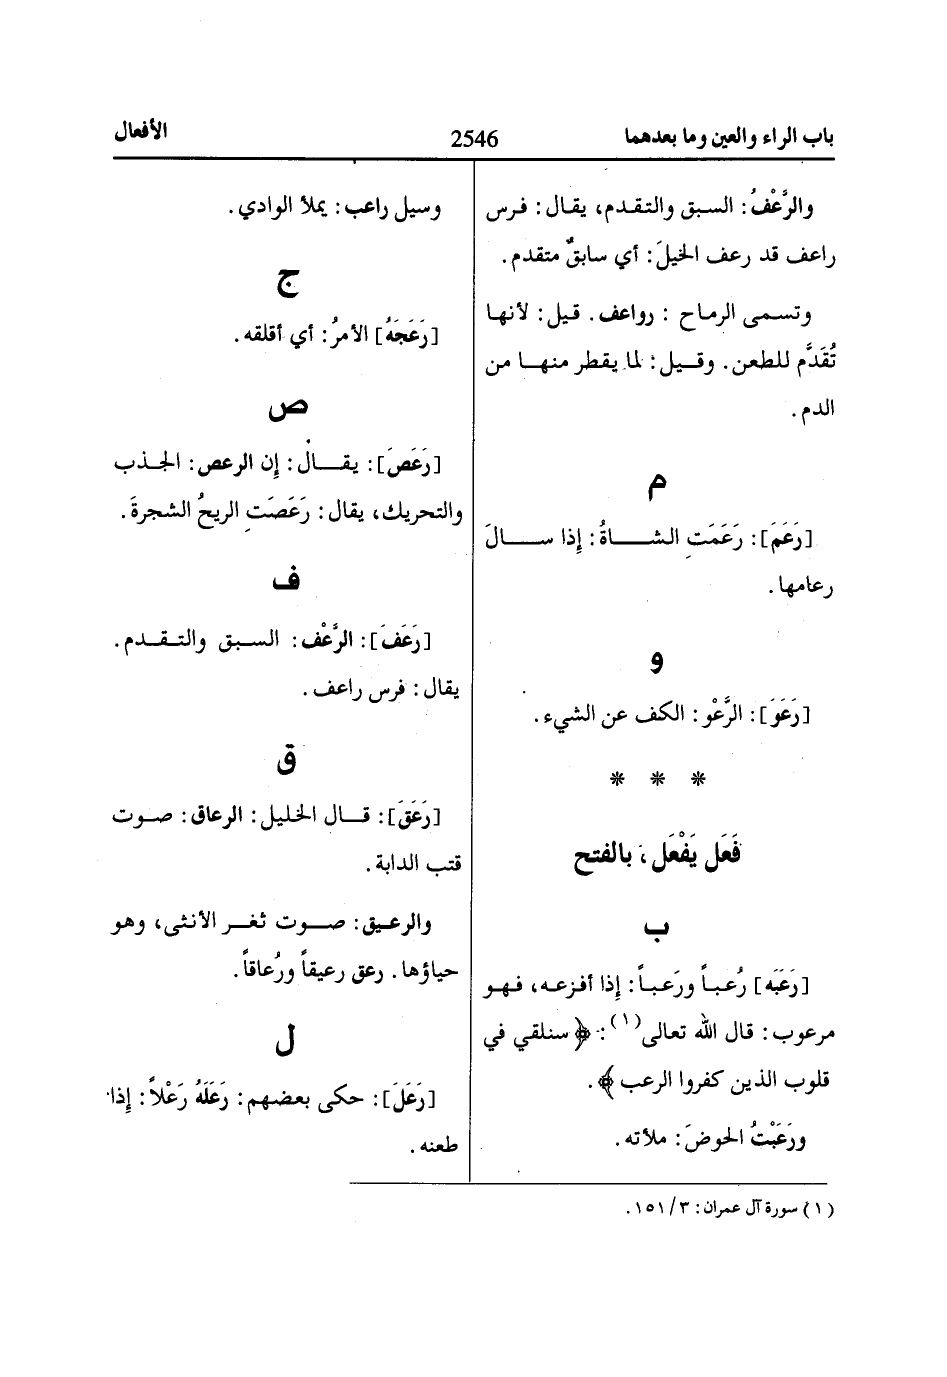 باب الراء والعين وما بعدهما
2546
الأفعال
والرَّعْفُ: السبق والتقدم، يقال: فرس
راعف قد رعف الخيلَ: أي سابقٌ متقدم.
وتسمى الرماح : رواعف. قيل: لأنها
تُقَدَّم للطعن. وقيل: لما يقطر منها من
الدم.
م
[رَعَمَ]: رَعَمَتِ الشاةُ: إذا سالَ
رعامها.
و
[رَعَوَ]: الرَّعْو: الكف عن الشيء.
* * *
فَعَل يَفْعَل، بالفتح
ب
[رَعَبَه] رُعباً ورَعباً: إذا أفزعه، فهو
مرعوب: قال الله تعالى(١): ﴿سنلقي في
قلوب الذين كفروا الرعب﴾.
ورَعَبْتُ الحوضَ: ملأته.
وسيل راعب: يملأ الوادي.
ج
[رَعَجَهُ] الأمرُ: أي أقلقه.
ص
[رَعَصَ]: يقال: إن الرعص: الجذب
والتحريك، يقال: رَعَصَتِ الريحُ الشجرةَ.
ف
[رَعَفَ]: الرَّعْف: السبق والتقدم.
يقال: فرس راعف.
ق
[رَعَقَ]: قال الخليل: الرعاق: صوت
قتب الدابة.
والرعيق: صوت ثغر الأنثى، وهو
حياؤها. رعق رعيقاً ورُعاقاً.
ل
[رَعَلَ]: حكى بعضهم: رَعَلَهُ رَعْلاً: إذا
طعنه.
(١) سورة آل عمران: ٣/ ١٥١.